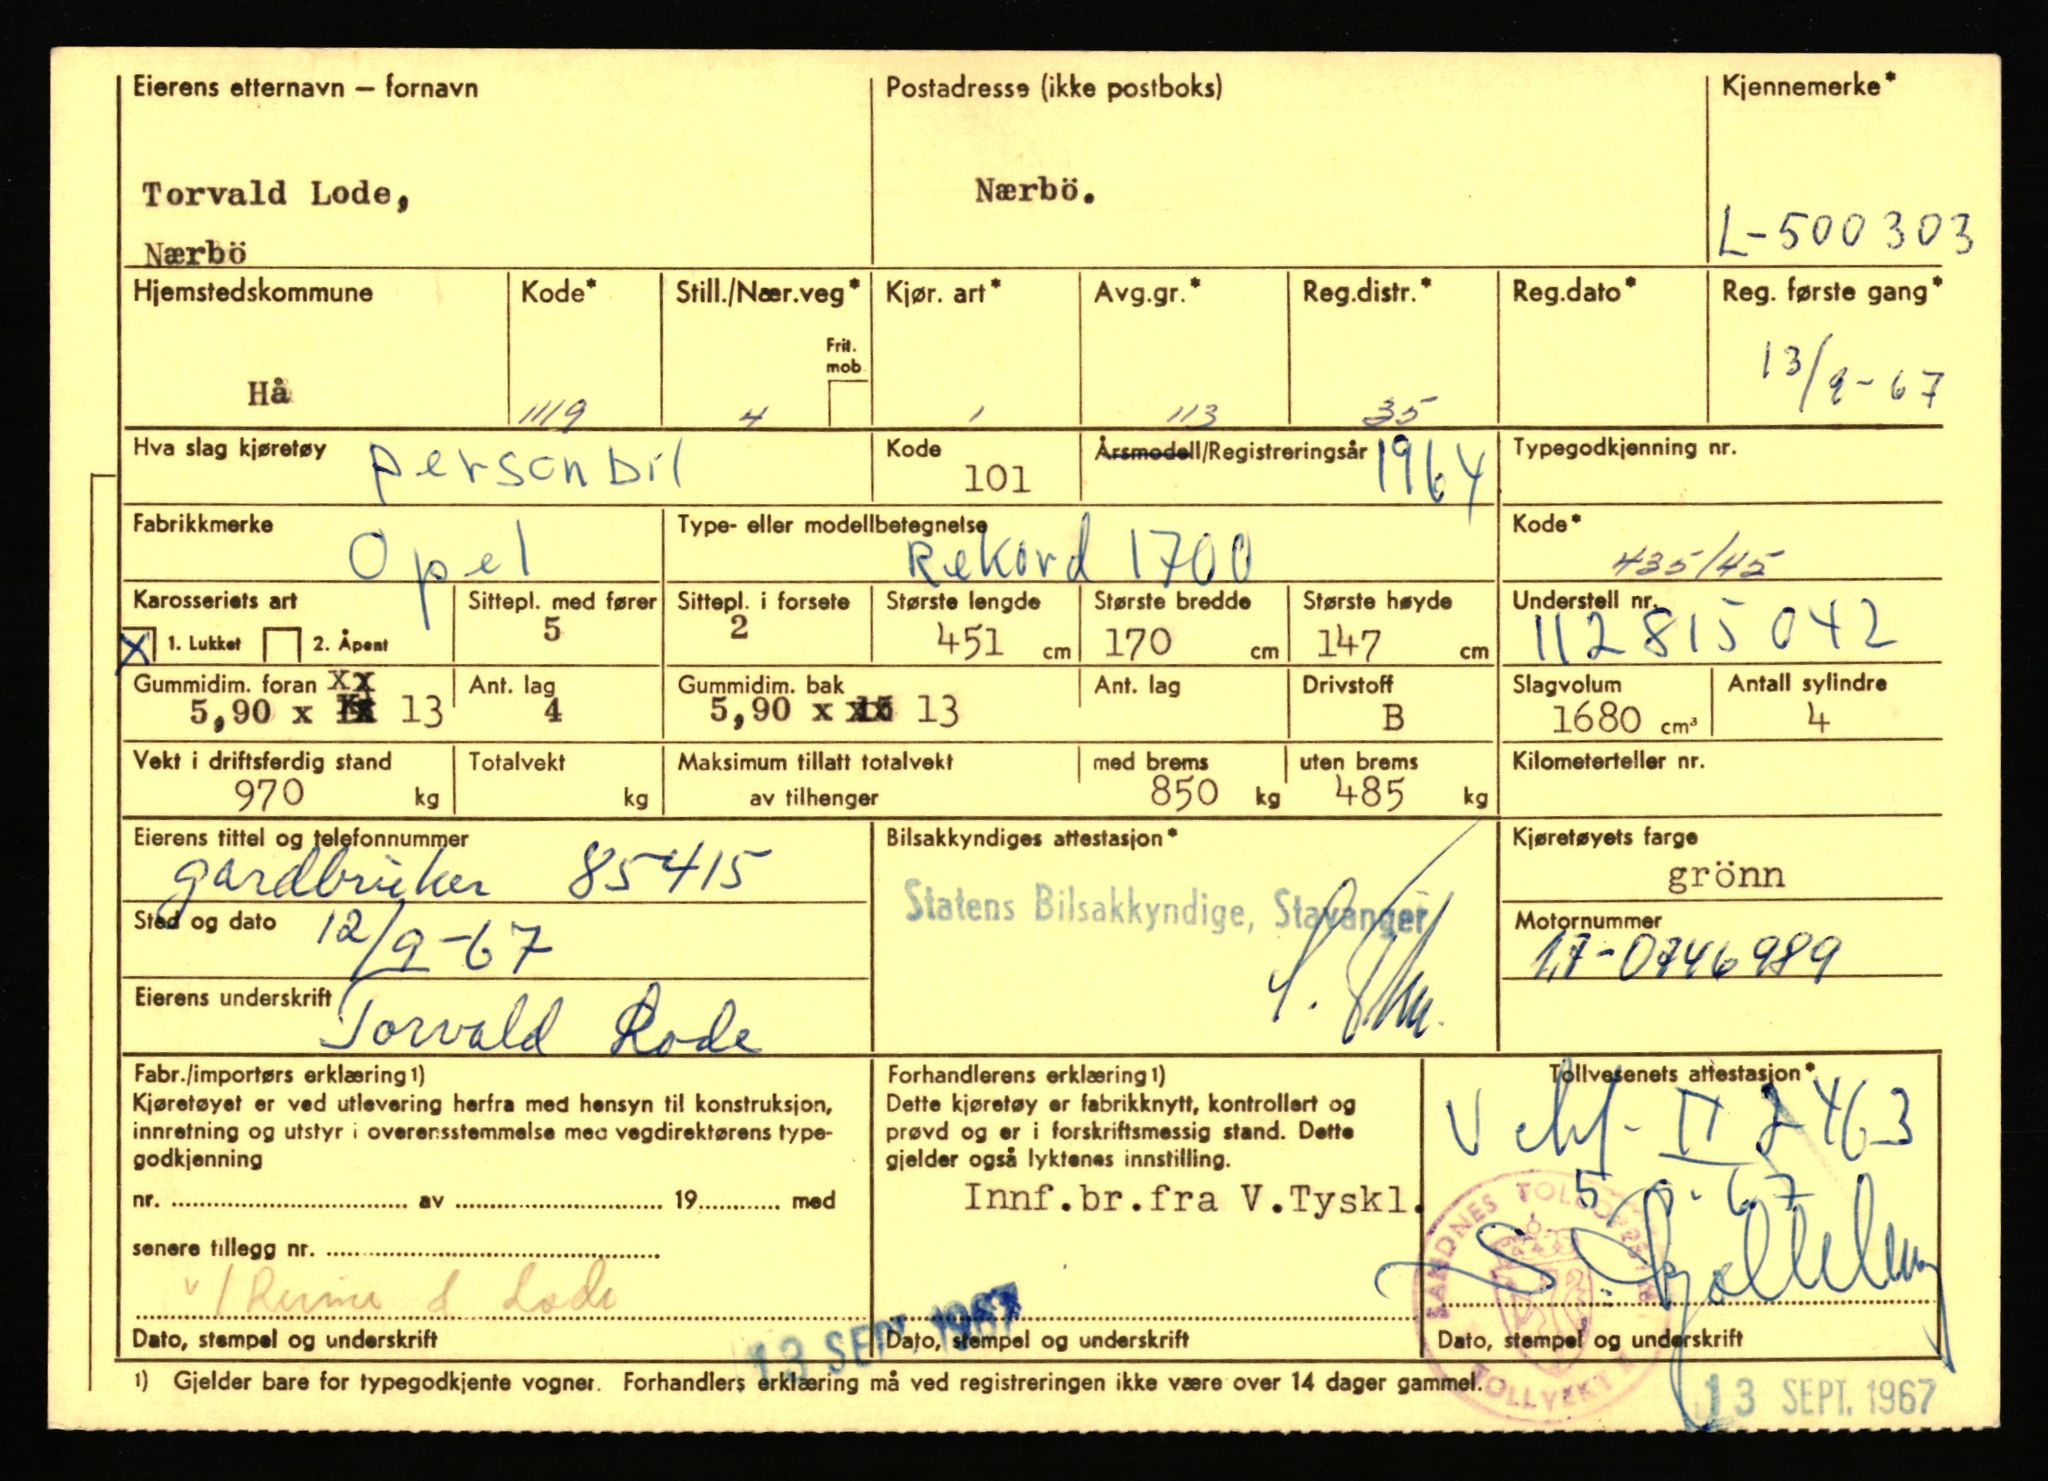 Eierens etternavn – fornavn
Postadresse (ikke postboks)
Kjennemerke*
Torvald Lode,
Nærbö.
Nærbö
L-500303
Hjemstedskommune
Kode*
Still./Nær.veg*
Kjør. art*
Avg.gr.*
Reg.distr.*
Reg.dato*
Reg. første gang*
Frit.
mob
Hå
1119
4
1
113
35
13/9-67
Hva slag kjøretøy
personbil
Kode
101
Årsmodell/Registreringsår
1964
Typegodkjenning nr.
Fabrikkmerke
Opel
Type- eller modellbetegnelse
Rekord 1700
Kode*
435/45
Karosseriets art
1. Lukket
2. Åpent
Sittepl. med fører
5
Sittepl. i forsete
2
Største lengde
451 cm
Største bredde
170 cm
Største høyde
147 cm
Understell nr.
112815042
Gummidim. foran xx
5,90 x 13
Ant. lag
4
Gummidim. bak
5,90 x 13
Ant. lag
Drivstoff
B
Slagvolum
1680 cm³
Antall sylindre
4
Vekt i driftsferdig stand
970 kg
Totalvekt
kg
Maksimum tillatt totalvekt
av tilhenger
med brems
850 kg
uten brems
485 kg
Kilometerteller nr.
Eierens tittel og telefonnummer
gardbruker 85415
Bilsakkyndiges attestasjon*
Statens Bilsakkyndige, Stavanger
Kjøretøyets farge
grönn
Sted og dato
12/9-67
Motornummer
1,7-0746989
Eierens underskrift
Torvald Lode
Fabr./importørs erklæring1)
Kjøretøyet er ved utlevering herfra med hensyn til konstruksjon,
innretning og utstyr i overensstemmelse med vegdirektørens type-
godkjenning
nr. av 19 med
senere tillegg nr.
Dato, stempel og underskrift
Forhandlerens erklæring1)
Dette kjøretøy er fabrikknytt, kontrollert og
prøvd og er i forskriftsmessig stand. Dette
gjelder også lyktenes innstilling.
Innf.br.fra V.Tyskl.
13 SEPT. 1967
Dato, stempel og underskrift
Tollvesenets attestasjon*
II 2463
SANDNES
TOLLVEKT
Dato, stempel og underskrift
1) Gjelder bare for typegodkjente vogner. Forhandlers erklæring må ved registreringen ikke være over 14 dager gammel.
13 SEPT. 1967